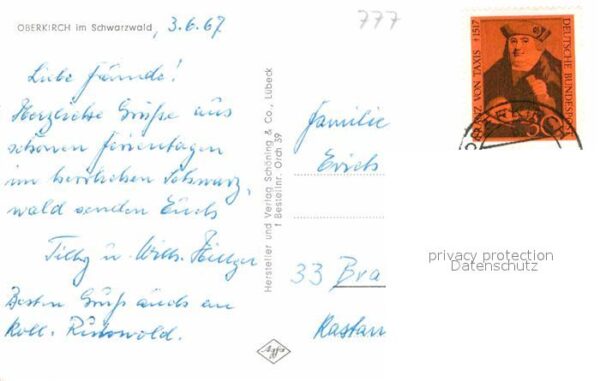 OBERKIRCH im Schwarzwald, 3.6.67
777
Liebe Freunde!
Herzliche Grüße aus
schönen Ferientagen
im herrlichen Schwarz-
wald senden Euch
Tilly u. Willi
Besten Gruß auch an
Koll.
Hersteller und Verlag Schöning & Co., Lübeck
† Bestellnr. Orch 39
Agfa
Familie
Erich
33 Bra
Kastan
FRANZ VON TAXIS † 1517
DEUTSCHE BUNDESPOST
30
privacy protection
Datenschutz